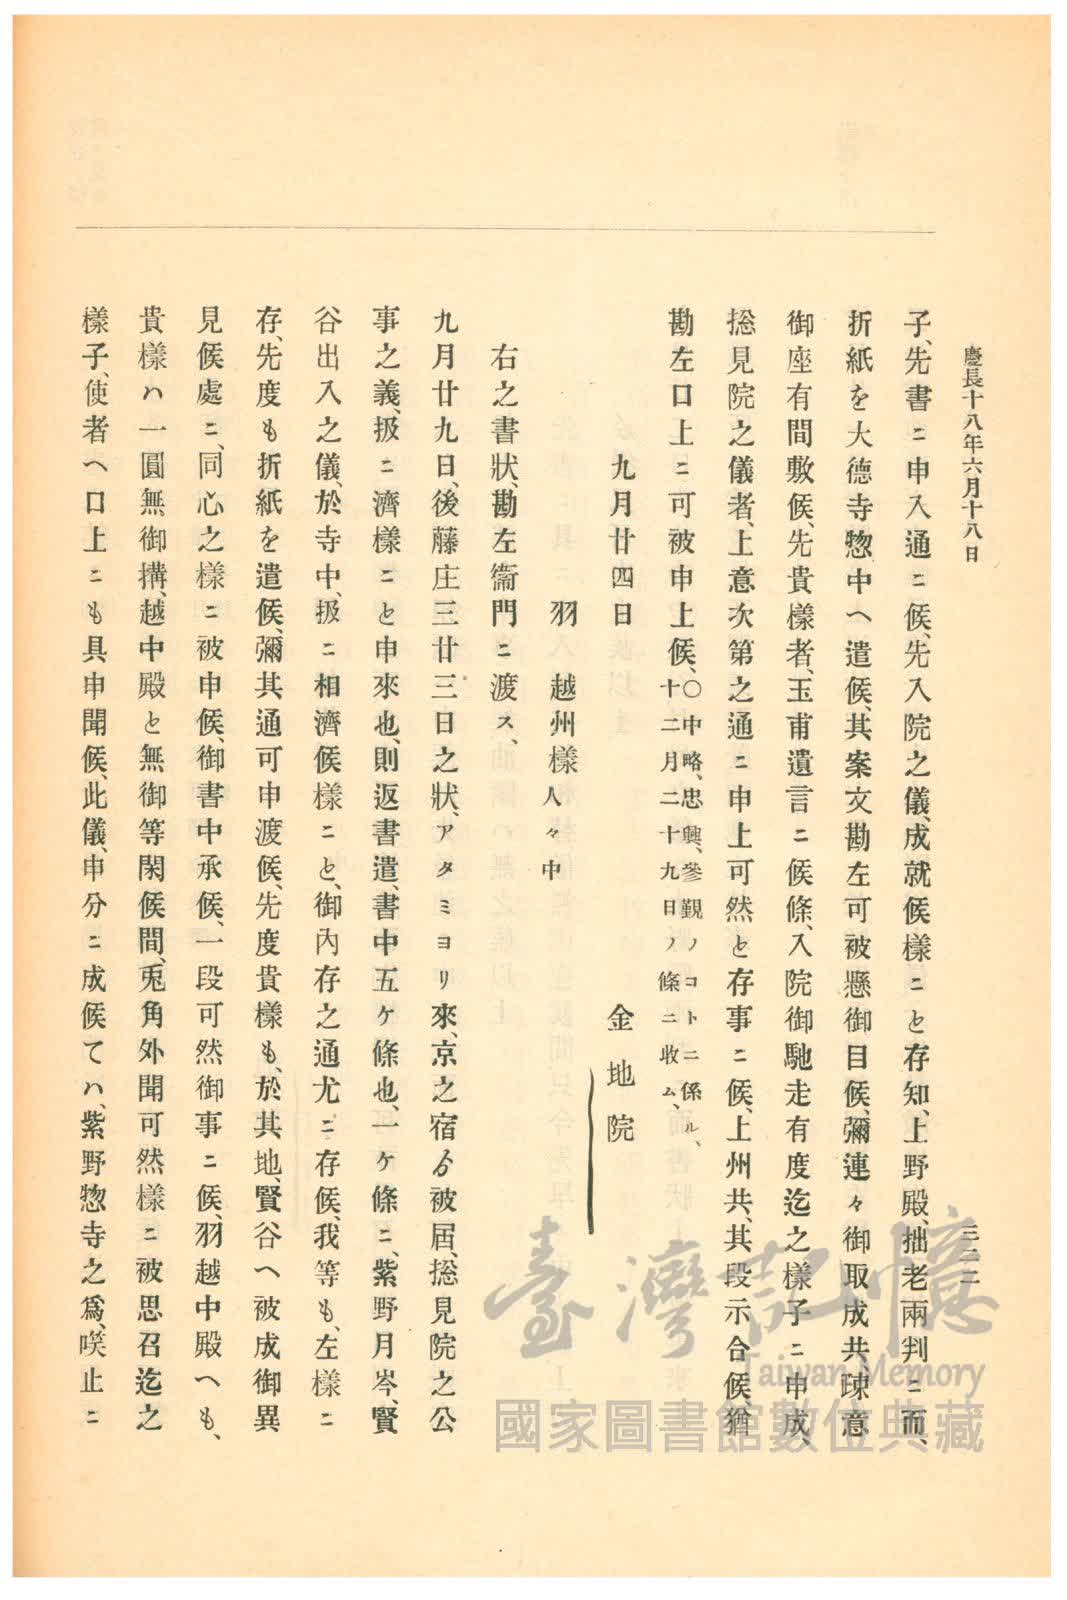 慶長十八年六月十八日
三二二
子、先書ニ申入通ニ候、先入院之儀、成就候樣ニと存知、上野殿、拙老兩判ニ而、
折紙を大德寺惣中へ遣候、其案文勘左可被懸御目候、彌連々御取成共珎意
御座有間敷候、先貴樣者、玉甫遺言ニ候條、入院御馳走有度迄之樣子ニ申成、
捴見院之儀者、上意次第之通ニ申上可然と存事ニ候、上州共、其段示合候、猶
勘左口上ニ可被申上候、〇中略、忠興、參觀ノコトニ係ル、十二月二十九日ノ條ニ收ム、
九月廿四日　金地院
羽　越州樣人々中
右之書狀、勘左衞門ニ渡ス、
九月廿九日、後藤庄三廿三日之狀、アタミヨリ來、京之宿ゟ被屆、捴見院之公
事之義、扱ニ濟樣ニと申來也、則返書遣、書中五ケ條也、一ケ條ニ、紫野月岑、賢
谷出入之儀、於寺中、扱ニ相濟候樣ニと、御內存之通尤ニ存候、我等も、左樣ニ
存、先度も折紙を遣候、彌其通可申渡候、先度貴樣も、於其地、賢谷へ被成御異
見候處ニ、同心之樣ニ被申候、御書中承候、一段可然御事ニ候、羽越中殿へも、
貴樣ハ一圓無御搆、越中殿と無御等閑候間、兎角外聞可然樣ニ被思召迄之
樣子、使者へ口上ニも具申聞候、此儀、申分ニ成候てハ、紫野惣寺之爲、咲止ニ
臺灣記憶
Taiwan Memory
國家圖書館數位典藏